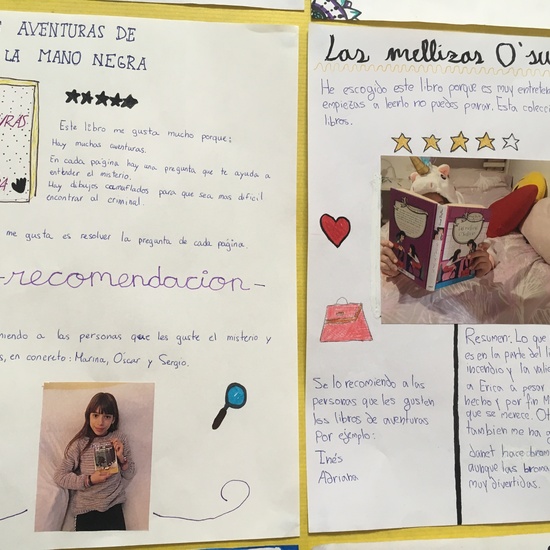 AVENTURAS DE
LA MANO NEGRA
Este libro me gusta mucho porque:
Hay muchas aventuras.
En cada página hay una pregunta que te ayuda a
entender el misterio.
Hay dibujos camuflados para que sea mas difícil
encontrar al criminal.
me gusta es resolver la pregunta de cada página.
-recomendacion-
a las personas que les guste el misterio y
en concreto: Marina, Oscar y Sergio.
Las mellizas O'su
He escogido este libro porque es muy
empiezas a leerlo no puedes parar. Esta
libros.
Se lo recomiendo a las
personas que les gusten
los libros de aventuras
Por ejemplo:
Inés
Adriana
Resumen: Lo que
es en la parte del
incendio y la
a Erica a pesar
hecho y por fin
que se merece.
tambien me ha
hace:
aunque las
muy divertidas.